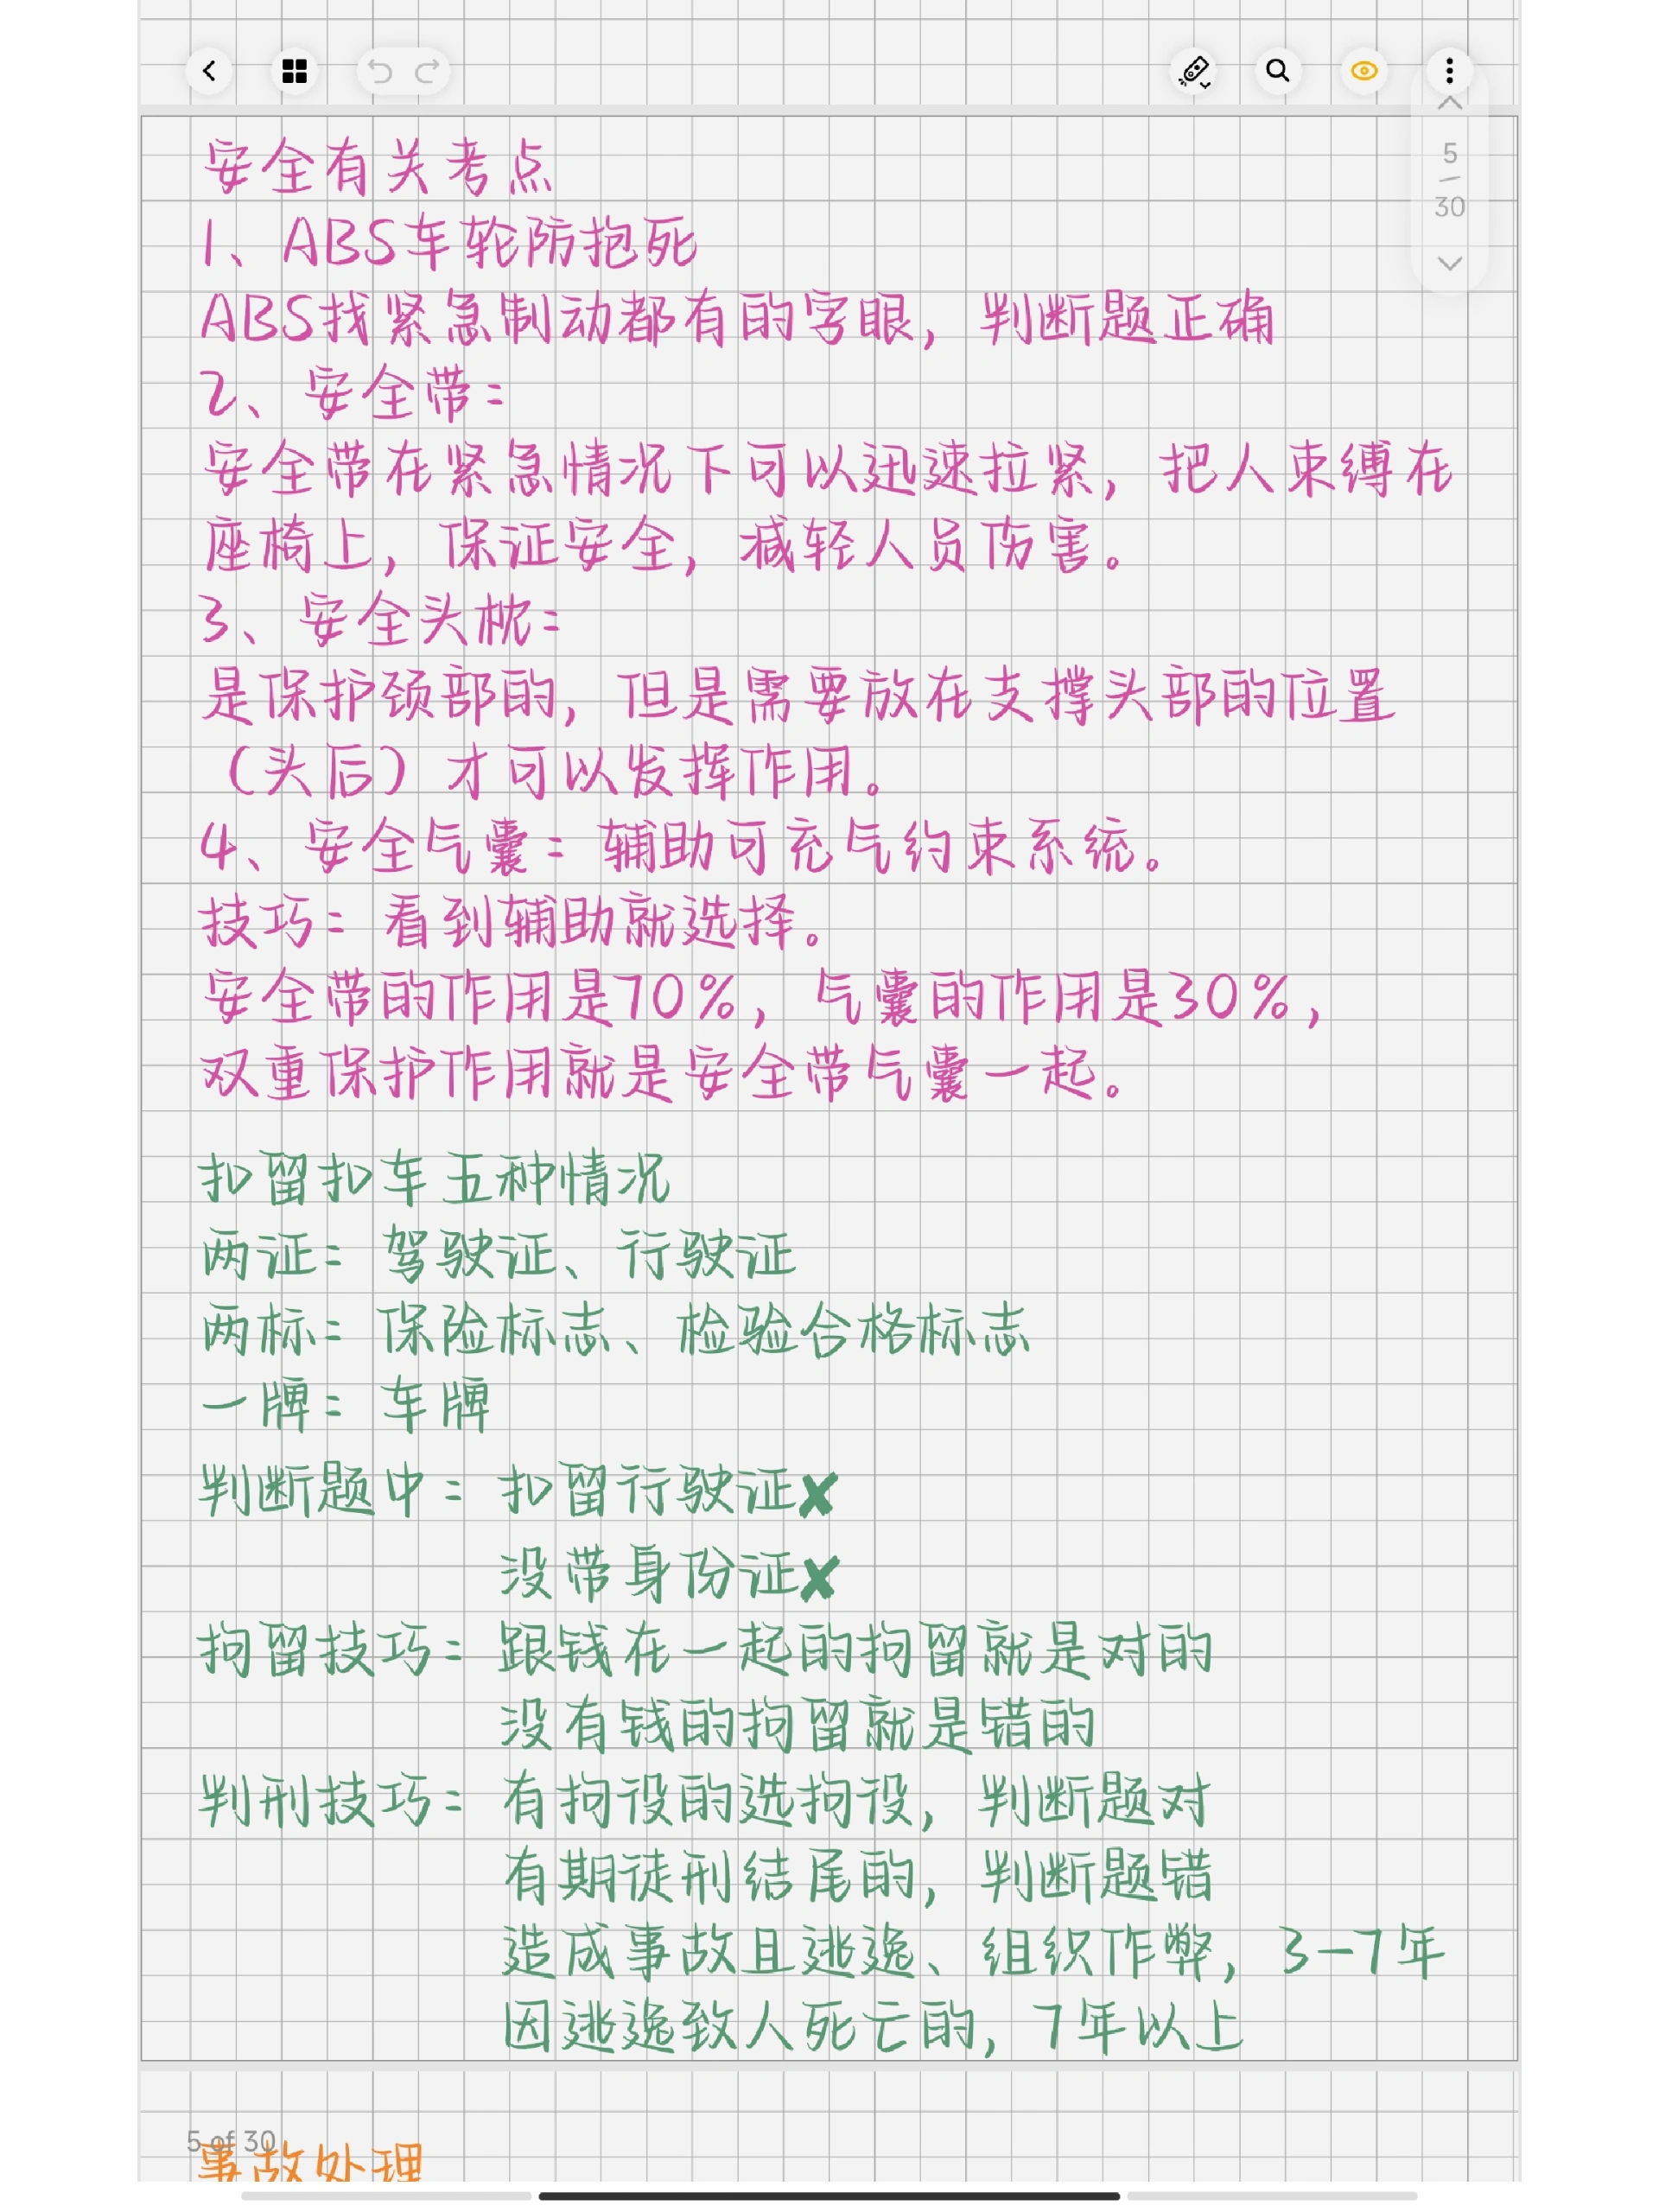 5
30
安全有关考点
1、ABS车轮防抱死
ABS找紧急制动都有的字眼，判断题正确
2、安全带：
安全带在紧急情况下可以迅速拉紧，把人束缚在
座椅上，保证安全，减轻人员伤害。
3、安全头枕：
是保护颈部的，但是需要放在支撑头部的位置
（头后）才可以发挥作用。
4、安全气囊：辅助可充气约束系统。
技巧：看到辅助就选择。
安全带的作用是70%，气囊的作用是30%，
双重保护作用就是安全带气囊一起。
扣留扣车五种情况
两证：驾驶证、行驶证
两标：保险标志、检验合格标志
一牌：车牌
判断题中：扣留行驶证✘
没带身份证✘
拘留技巧：跟钱在一起的拘留就是对的
没有钱的拘留就是错的
判刑技巧：有拘役的选拘役，判断题对
有期徒刑结尾的，判断题错
造成事故且逃逸、组织作弊，3-7年
因逃逸致人死亡的，7年以上
5 of 30
事故处理